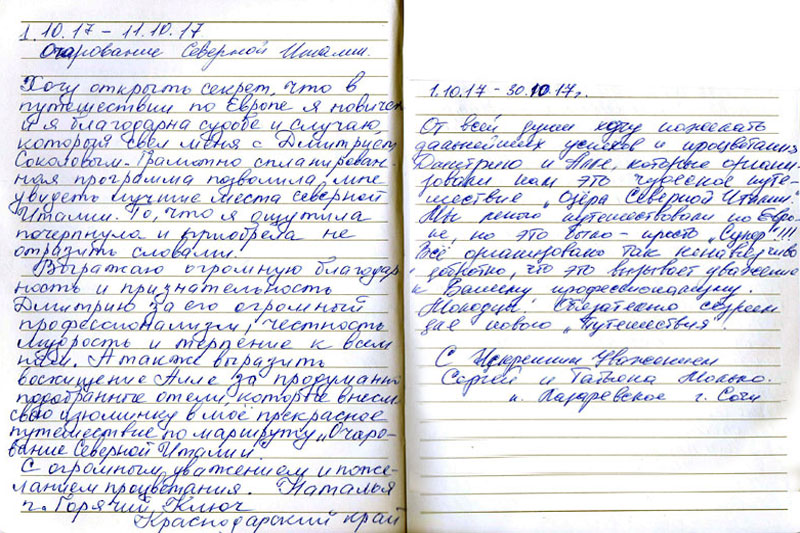 1.10.17 – 11.10.17
Очарование Северной Италии.
Хочу открыть секрет, что в
путешествии по Европе я новичек
и я благодарна судьбе и случаю,
который свел меня с Дмитрием
Соколовым. Грамотно спланирован-
ная программа позволила мне
увидеть лучшие места северной
Италии. То, что я ощутила
почерпнула и приобрела не
отразить словами.
Выражаю огромную благодар
ность и признательность
Дмитрию за его огромный
профессионализм, честность
мудрость и терпение к всем
нам. А также выразить
восхищение Алле за продуманно
подобранные отели, которые внесли
свою изюминку в моё прекрасное
путешествие по маршруту „Очаро-
вание Северной Италии".
С огромным уважением и поже-
ланием процветания. Наталья
г. Горячий Ключ
Краснодарский край
1.10.17 – 30.10.17г.
От всей души хочу пожелать
дальнейших успехов и процветания
Дмитрию и Алле, которые органи-
зовали нам это чудесное путе-
шествие „Озёра Северной Италии".
Мы много путешествовали по Евро-
пе, но это было – просто „Супер"!!!
Всё организовано так ненавязчиво
добротно, что это вызывает уважение
к Вашему профессионализму.
Молодцы! Обязательно созреем
для нового „Путешествия"
С Искренним Уважением
Сергей и Татьяна
п. Лазаревское г. Сочи